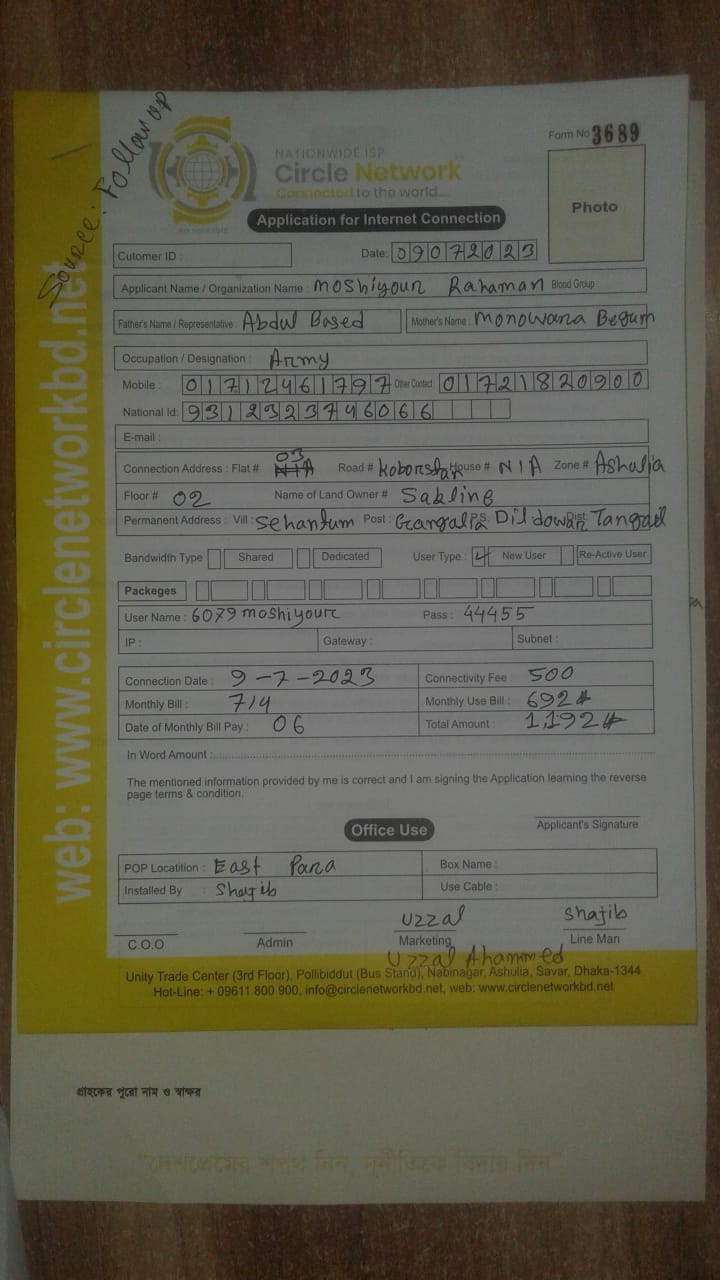 Source: Follow up
web: www.circlenetworkbd.net
Form No 3689
NATIONWIDE ISP
Circle Network
Connected to the world...
Photo
Application for Internet Connection
Cutomer ID :
Date: 09072023
Applicant Name / Organization Name : Moshiyour Rahaman Blood Group :
Father's Name / Representative : Abdul Based Mother's Name : Monowara Begum
Occupation / Designation : Army
Mobile : 01712461797 Other Contact : 01721820900
National Id: 9312323746066
E-mail :
Connection Address : Flat # 03 Road # Koborstan House # N/A Zone # Ashulia
Floor # 02 Name of Land Owner # Sakline
Permanent Address : Vill : Sehantum Post : P.S Dist: Tangail
Bandwidth Type Shared Dedicated User Type : New User Re-Active User
Packeges
User Name : 6079 moshiyour Pass : 44455
IP : Gateway : Subnet :
Connection Date : 9-7-2023 Connectivity Fee : 500
Monthly Bill : 714 Monthly Use Bill : 692
Date of Monthly Bill Pay : 06 Total Amount : 1,192
In Word Amount :
The mentioned information provided by me is correct and I am signing the Application learning the reverse
page terms & condition.
Applicant's Signature
Office Use
POP Locatition : East Para Box Name :
Installed By : Shajib Use Cable :
Uzzal Shajib
C.O.O Admin Marketing Line Man
Uzzal Ahammed
Unity Trade Center (3rd Floor), Pollibiddut (Bus Stand), Nabinagar, Ashulia, Savar, Dhaka-1344
Hot-Line: + 09611 800 900, info@circlenetworkbd.net, web: www.circlenetworkbd.net
গ্রাহকের পুরো নাম ও স্বাক্ষর
"দেশপ্রেমের শপথ নিন, দুর্নীতিকে বিদায় দিন"